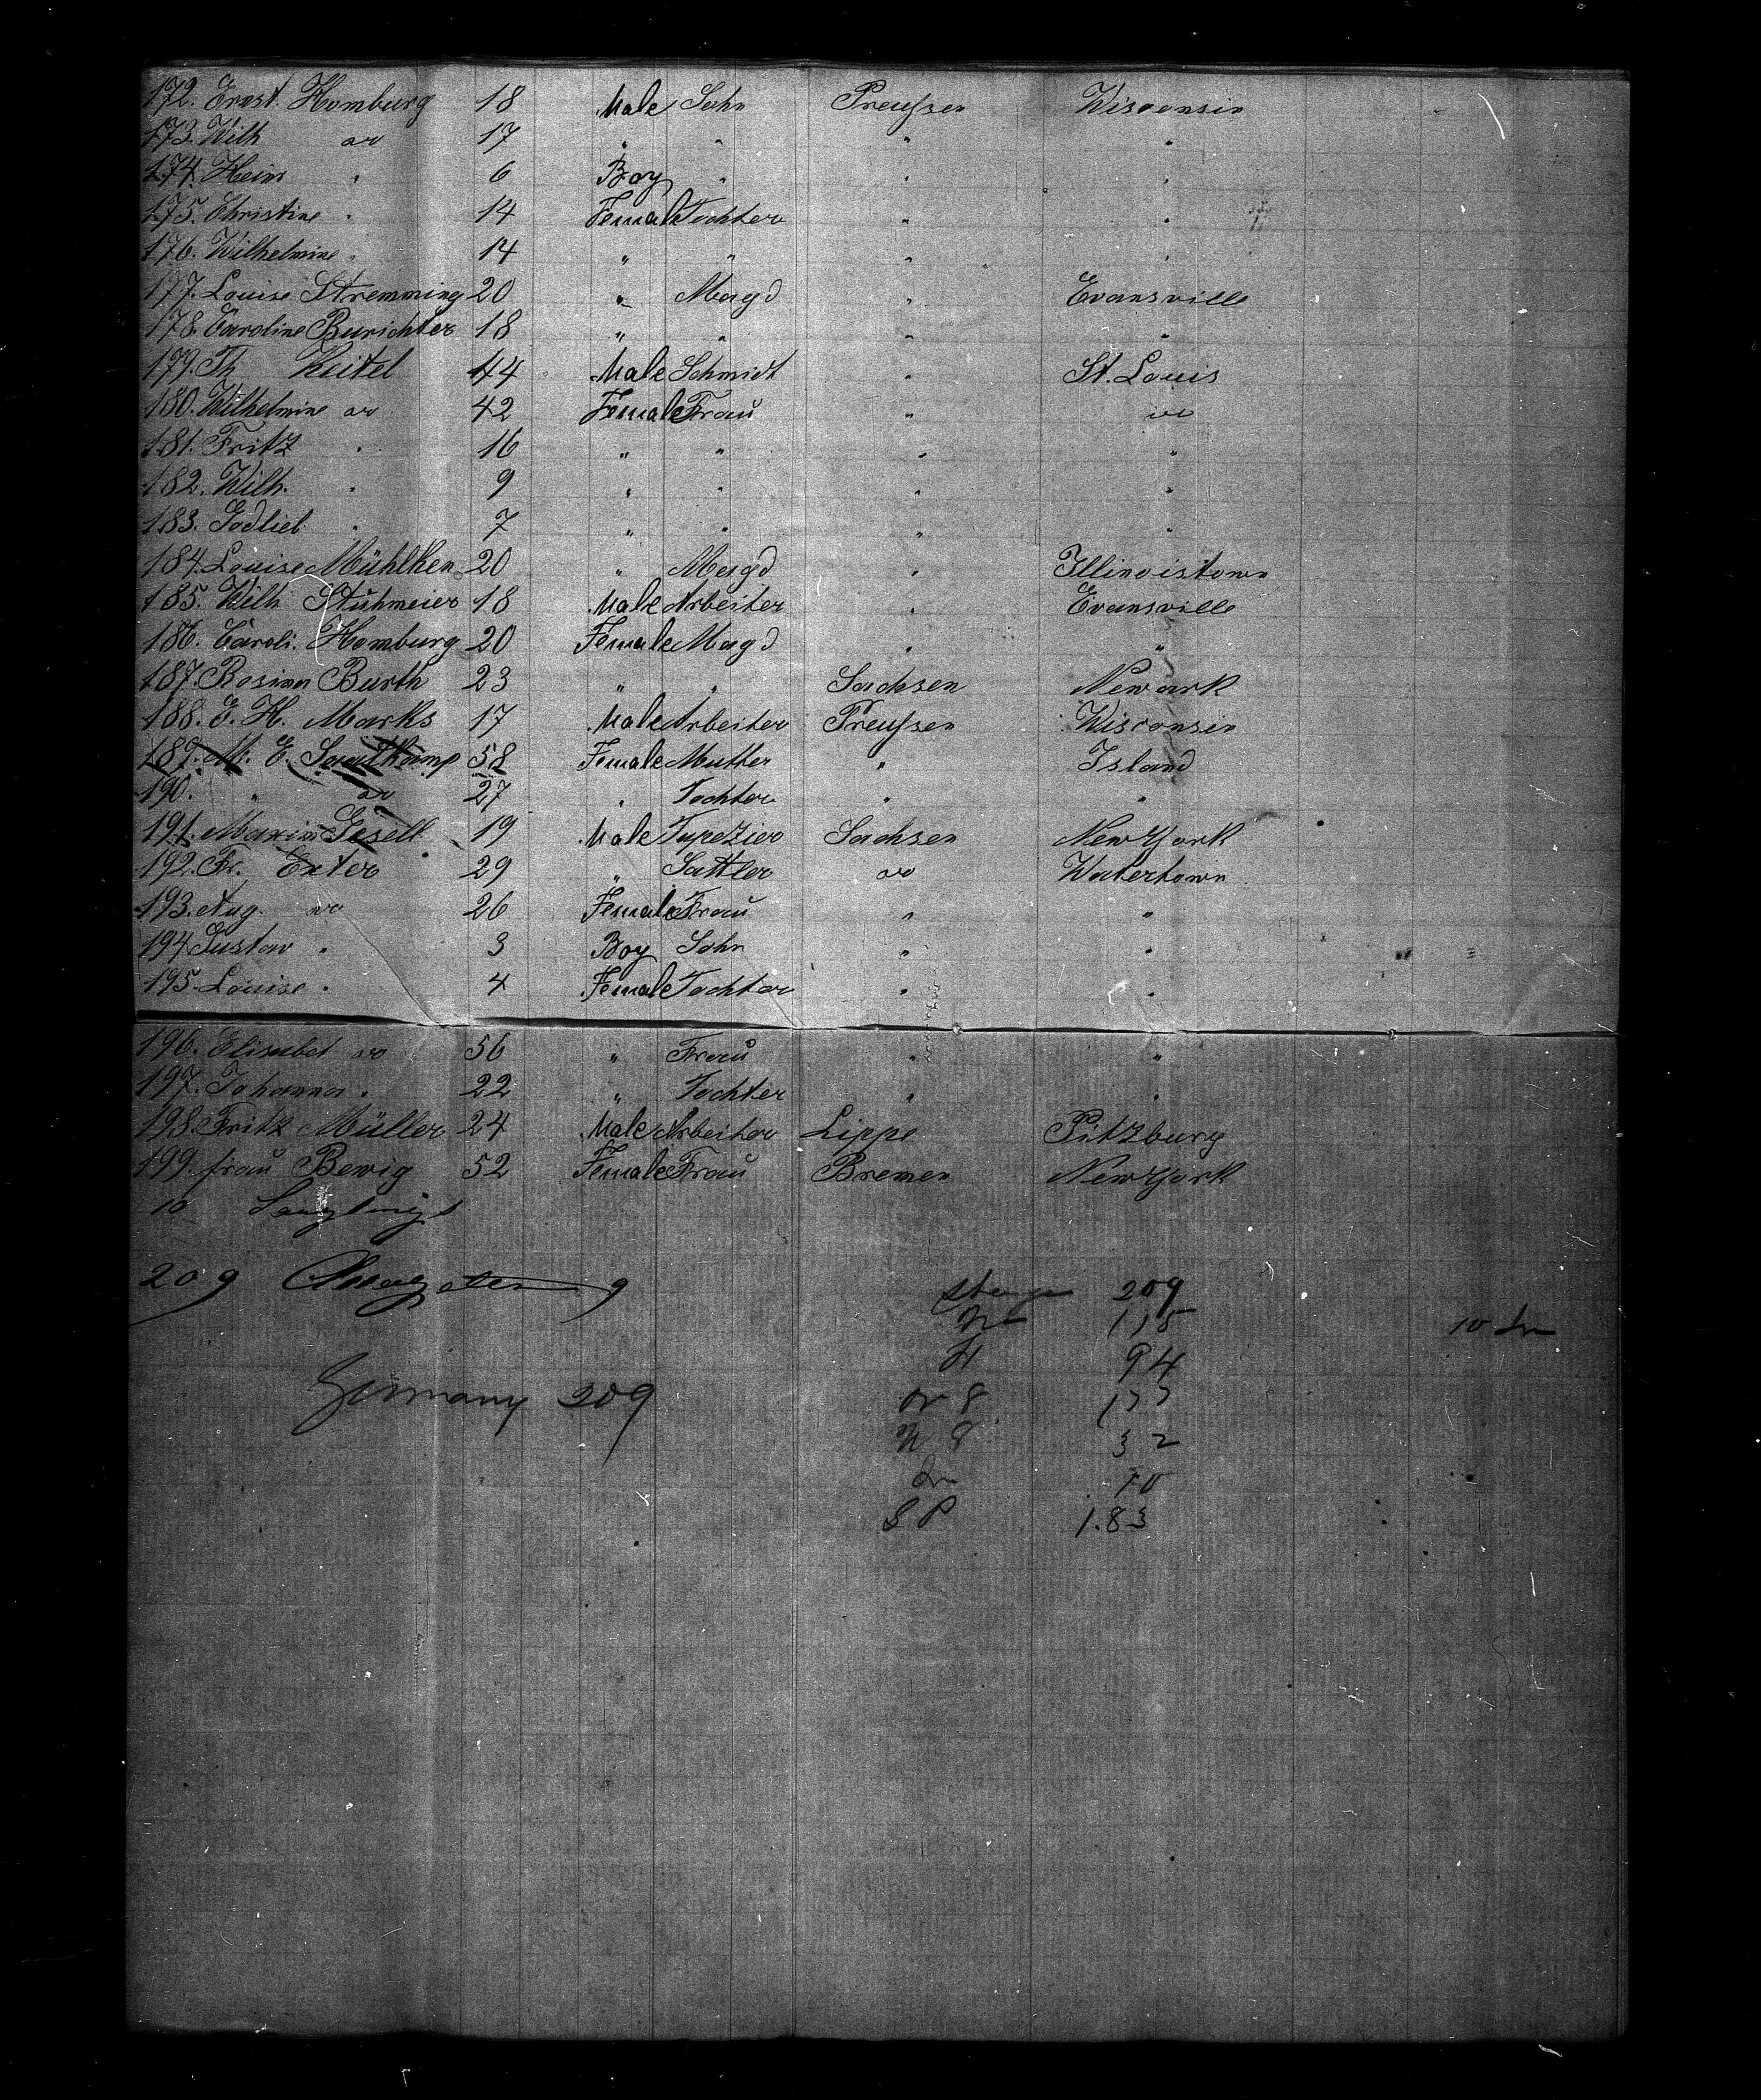 172. Ernst. Homburg 18 Male Sohn Preußen Wisconsin
173. Wilh do 17 " " " "
174. Heinr " 6 Boy " " "
175. Christine " 14 Female Tochter " "
176. Wilhelmine " 14 " " " "
177. Louise Stremming 20 " Magd " Evansville
178. Caroline Burichter 18 " " " "
179. Th Keitel 44 Male Schmidt " St. Louis
180. Wilhelmine do 42 Female Frau " do
181. Fritz " 16 " " " "
182. Wilh. " 9 " " " "
183. Godlieb " 7 " " " "
184. Louise Mühlken 20 " Magd " Illinoistown
185. Wilh Stühmeier 18 Male Arbeiter " Evansville
186. Caroli. Homburg 20 Female Magd " "
187. Rosina Burth 23 " " Sachsen Newark
188. E. H. Marks 17 Male Arbeiter Preußen Wisconsin
189. M. E. 58 Female Mutter " Island
190. " do 27 " Tochter " "
191. Gesell 19 Male Tapezier Sachsen New York
192. Fr. Exter 29 " Sattler do Watertown
193. Aug. do 26 Female Frau " "
194 Gustav " 3 Boy Sohn " "
195. Louise " 4 Female Tochter " "
196. Elisabet do 56 " Frau " "
197. Johanna " 22 " Tochter " "
198. Fritz Müller 24 Male Arbeiter Lippe Pitzburg
199. frau Bewig 52 Female Frau Bremen New York
10
209
209
115
94
Germany 209
32
10
1.83